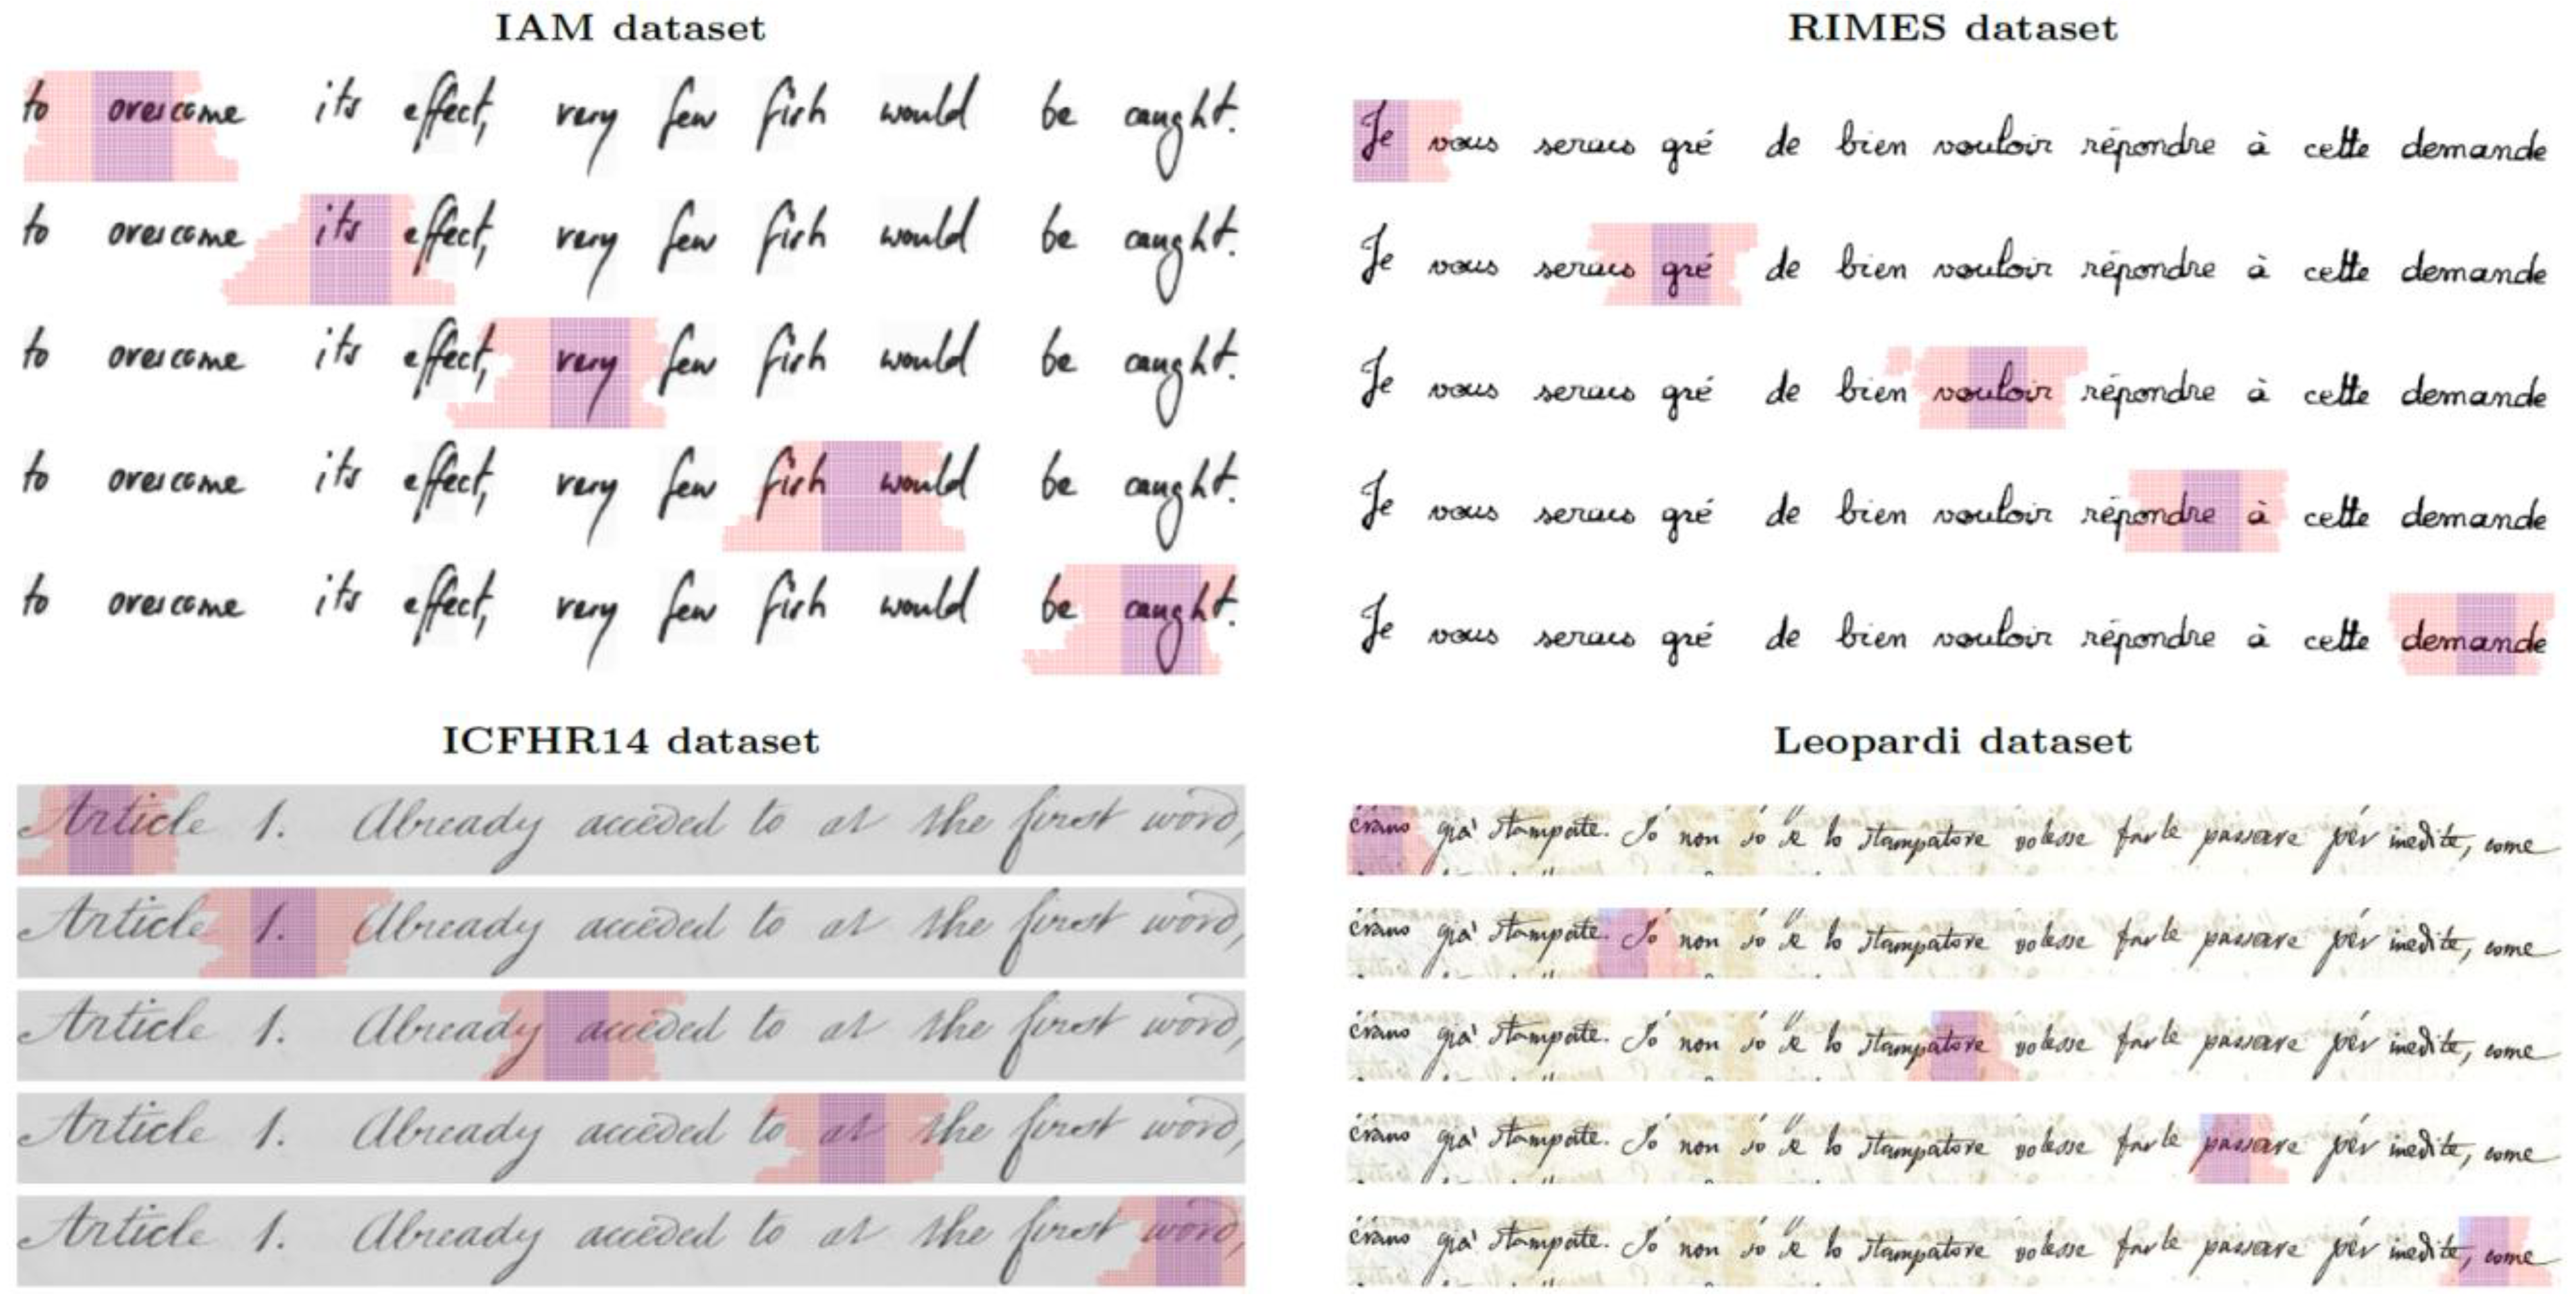 IAM dataset
to overcome its effect, very few fish would be caught.
to overcome its effect, very few fish would be caught.
to overcome its effect, very few fish would be caught.
to overcome its effect, very few fish would be caught.
to overcome its effect, very few fish would be caught.
RIMES dataset
Je vous serais gré de bien vouloir répondre à cette demande
Je vous serais gré de bien vouloir répondre à cette demande
Je vous serais gré de bien vouloir répondre à cette demande
Je vous serais gré de bien vouloir répondre à cette demande
Je vous serais gré de bien vouloir répondre à cette demande
ICFHR14 dataset
Article 1. Already acceded to at the first word,
Article 1. Already acceded to at the first word,
Article 1. Already acceded to at the first word,
Article 1. Already acceded to at the first word,
Article 1. Already acceded to at the first word,
Leopardi dataset
erano già stampate. Io non so se lo stampatore volesse farle passare per inedite, come
erano già stampate. Io non so se lo stampatore volesse farle passare per inedite, come
erano già stampate. Io non so se lo stampatore volesse farle passare per inedite, come
erano già stampate. Io non so se lo stampatore volesse farle passare per inedite, come
erano già stampate. Io non so se lo stampatore volesse farle passare per inedite, come